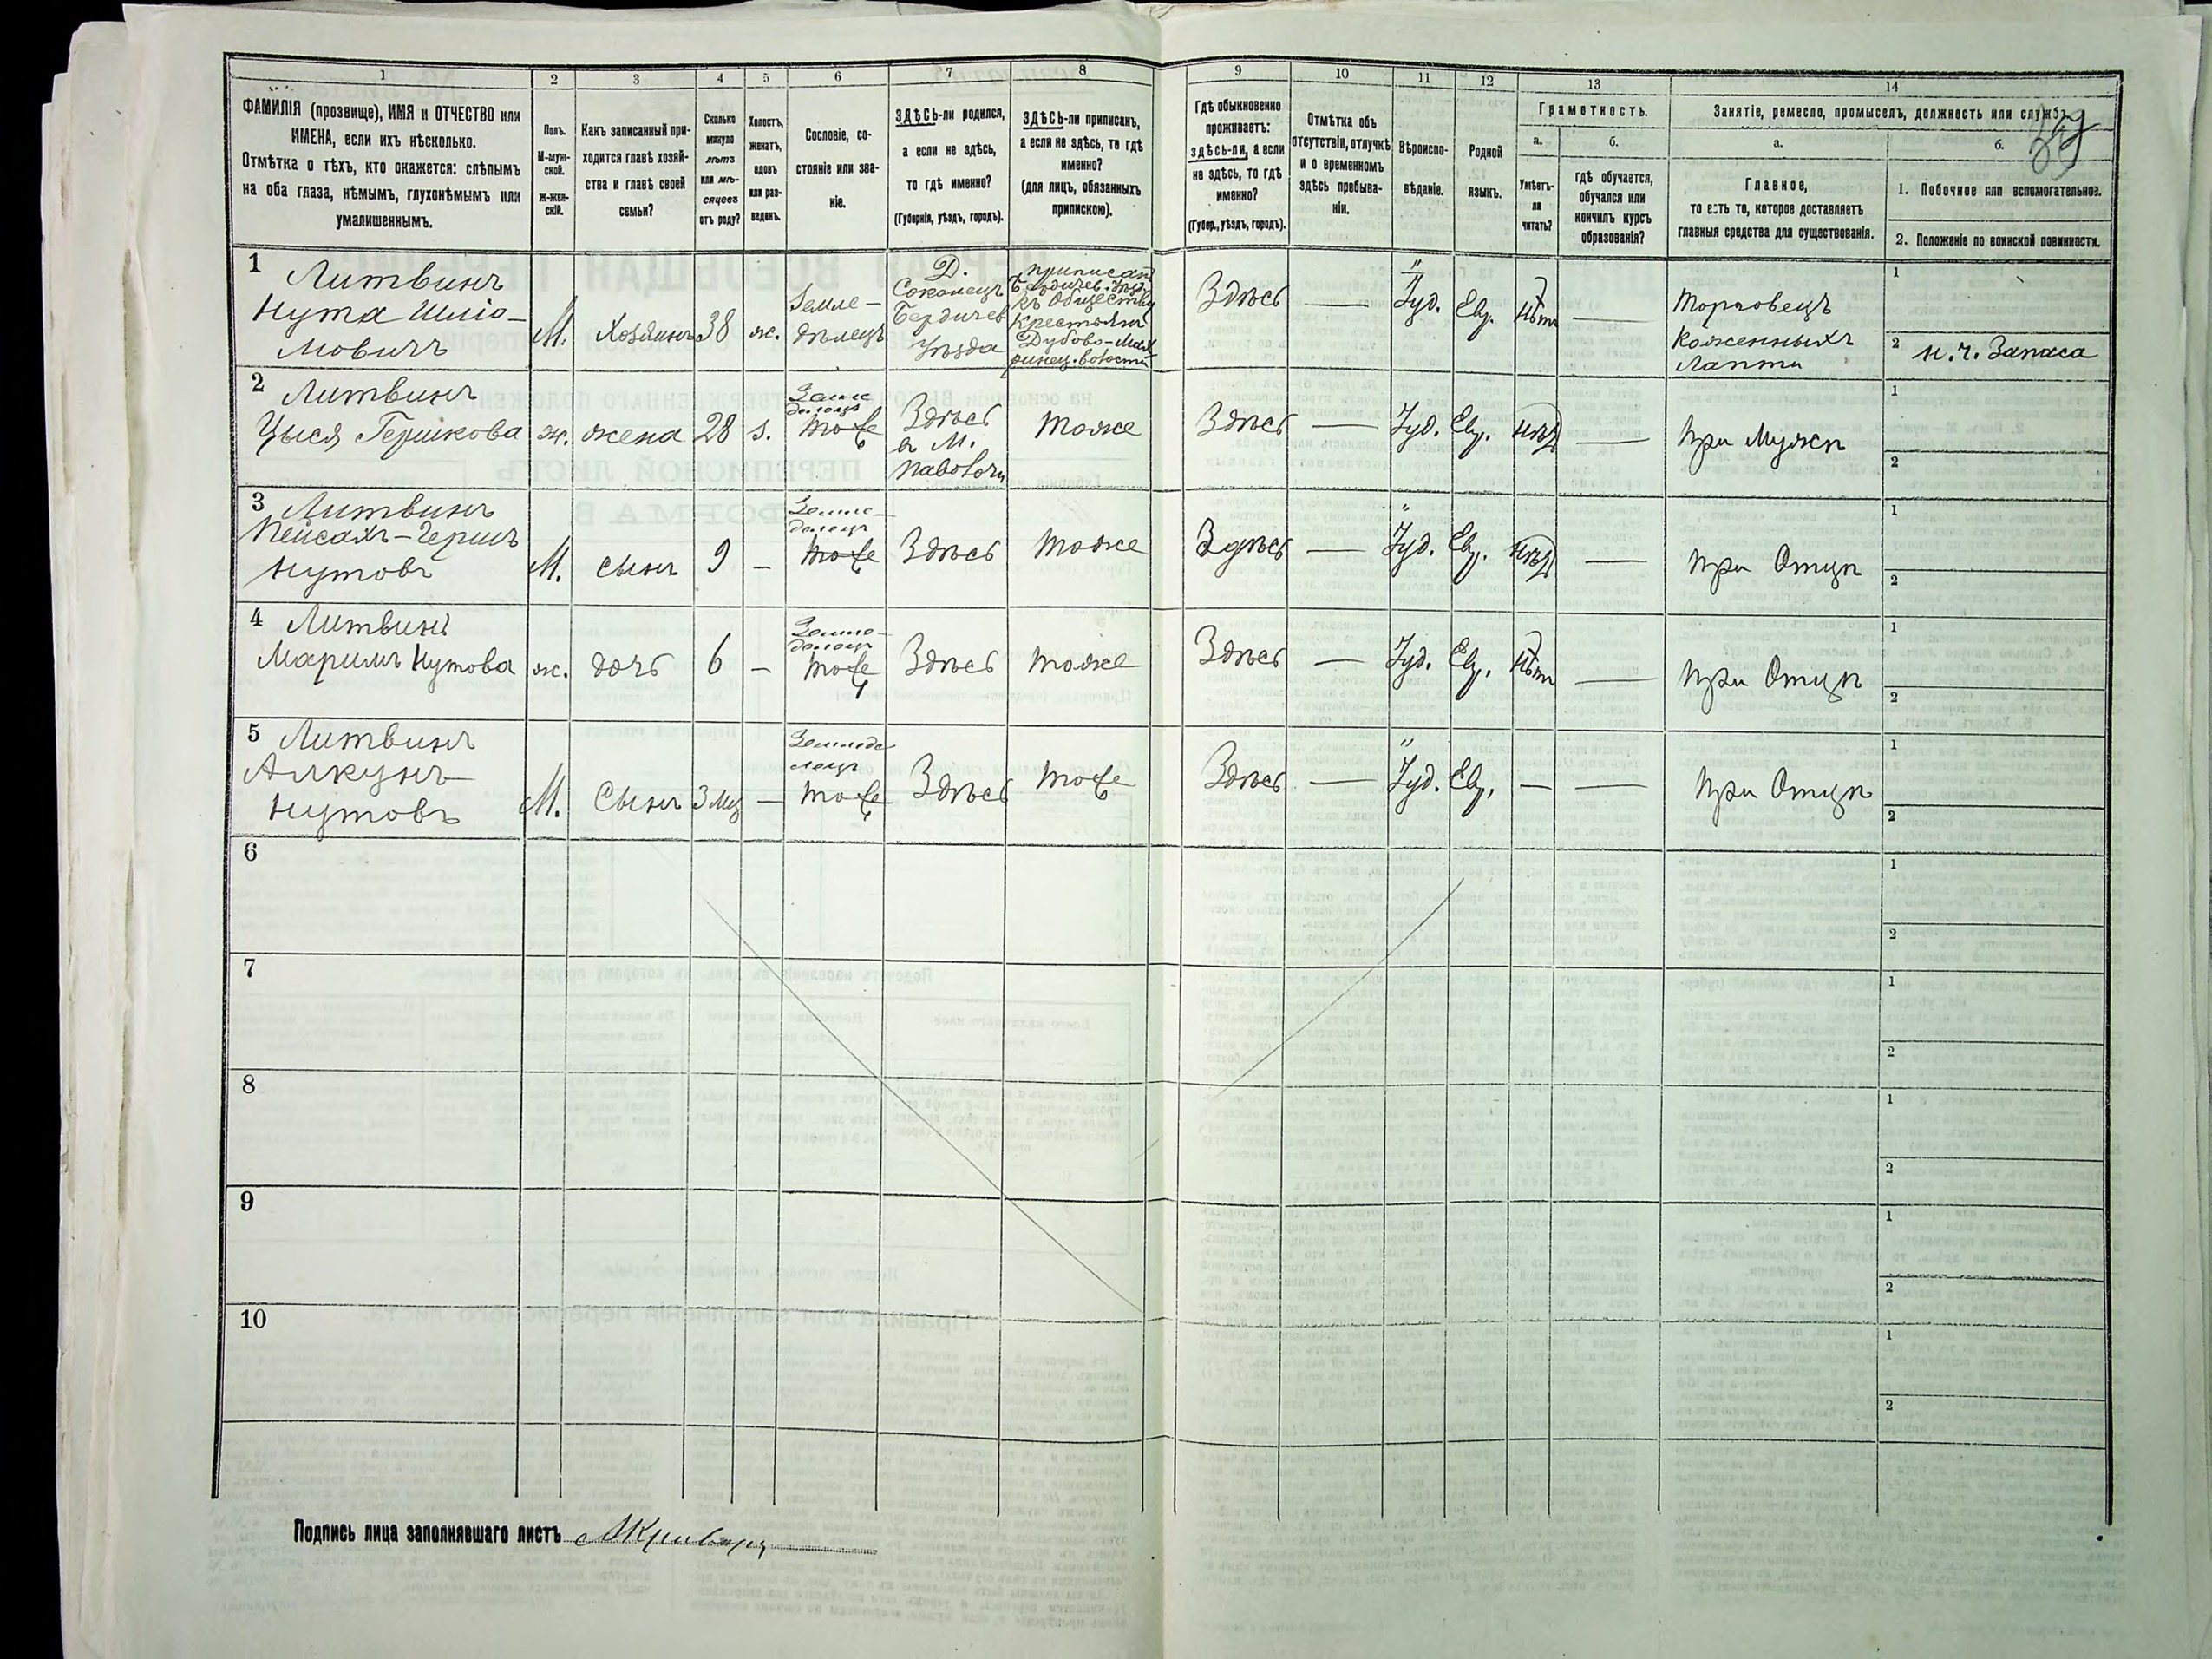 1 2 3 4 5 6 7 8 9 10 11 12 13 14
ФАМИЛІЯ (прозвище), ИМЯ и ОТЧЕСТВО или
ИМЕНА, если ихъ нѣсколько.
Отмѣтка о тѣхъ, кто окажется: слѣпымъ
на оба глаза, нѣмымъ, глухонѣмымъ или
умалишеннымъ.
Полъ.
М-муж-
ской.
Ж-жен-
скій.
Какъ записанный при-
ходится главѣ хозяй-
ства и главѣ своей
семьи?
Сколько
минуло
лѣтъ
или мѣ-
сяцевъ
отъ роду?
Холостъ,
женатъ,
вдовъ
или раз-
веденъ.
Сословіе, со-
стояніе или зва-
ніе.
ЗДѢСЬ-ли родился,
а если не здѣсь,
то гдѣ именно?
(Губернія, уѣздъ, городъ).
ЗДѢСЬ-ли приписанъ,
а если не здѣсь, то гдѣ
именно?
(для лицъ, обязанныхъ
припискою).
Гдѣ обыкновенно
проживаетъ:
здѣсь-ли, а если
не здѣсь, то гдѣ
именно?
(Губер., уѣздъ, городъ).
Отмѣтка объ
отсутствіи, отлучкѣ
и о временномъ
здѣсь пребыва-
ніи.
Вѣроиспо-
вѣданіе.
Родной
языкъ.
Грамотность.
а.
Умѣетъ-
ли
читать?
б.
гдѣ обучается,
обучался или
кончилъ курсъ
образованія?
Занятіе, ремесло, промыселъ, должность или служба.
а.
Главное,
то есть то, которое доставляетъ
главныя средства для существованія.
б.
1. Побочное или вспомогательное.
2. Положеніе по воинской повинности.
1
Литвинъ
Нута Шліо-
мовичъ
М.
Хозяинъ
38
ж.
Земле-
дѣлецъ
Д.
Соколецъ
Бердичев
Уѣзда
приписан
къ Обществу
Крестьян
Здѣсь
—
Іуд.
Евр.
Нѣтъ
—
Торговецъ
Коженныхъ
Лапти
1
2 н. ч. Запаса
2 Литвинъ
Цыся Гершкова
ж.
жена
28
з.
Земле
делецъ
тоже
Здѣсь
в М.
Тоже
Здѣсь
—
Іуд.
Евр.
нѣтъ
—
При Мужѣ
1
2
3 Литвинъ
Пейсахъ-Гершъ
Нутовъ
М.
сынъ
9
—
Земле-
делецъ
тоже
Здѣсь
Тоже
Здѣсь
—
Іуд.
Евр.
нѣтъ
—
При Отцѣ
1
2
4 Литвинъ
Маримъ Нутова
ж.
дочь
6
—
Земле-
делецъ
тоже
Здѣсь
Тоже
Здѣсь
—
Іуд.
Евр.
Нѣтъ
—
При Отцѣ
1
2
5 Литвинъ
Алкунъ
Нутовъ
М.
Сынъ
3 мц
—
Земледе
лецъ
тоже
Здѣсь
Тоже
Здѣсь
—
Іуд.
Евр.
—
—
При Отцѣ
1
2
6
1
2
7
1
2
8
1
2
9
1
2
10
1
2
Подпись лица заполнявшаго листъ